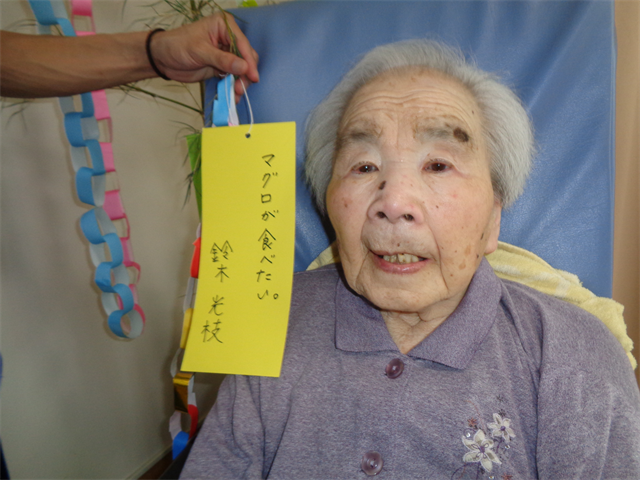 マグロが食べたい。
鈴木光枝